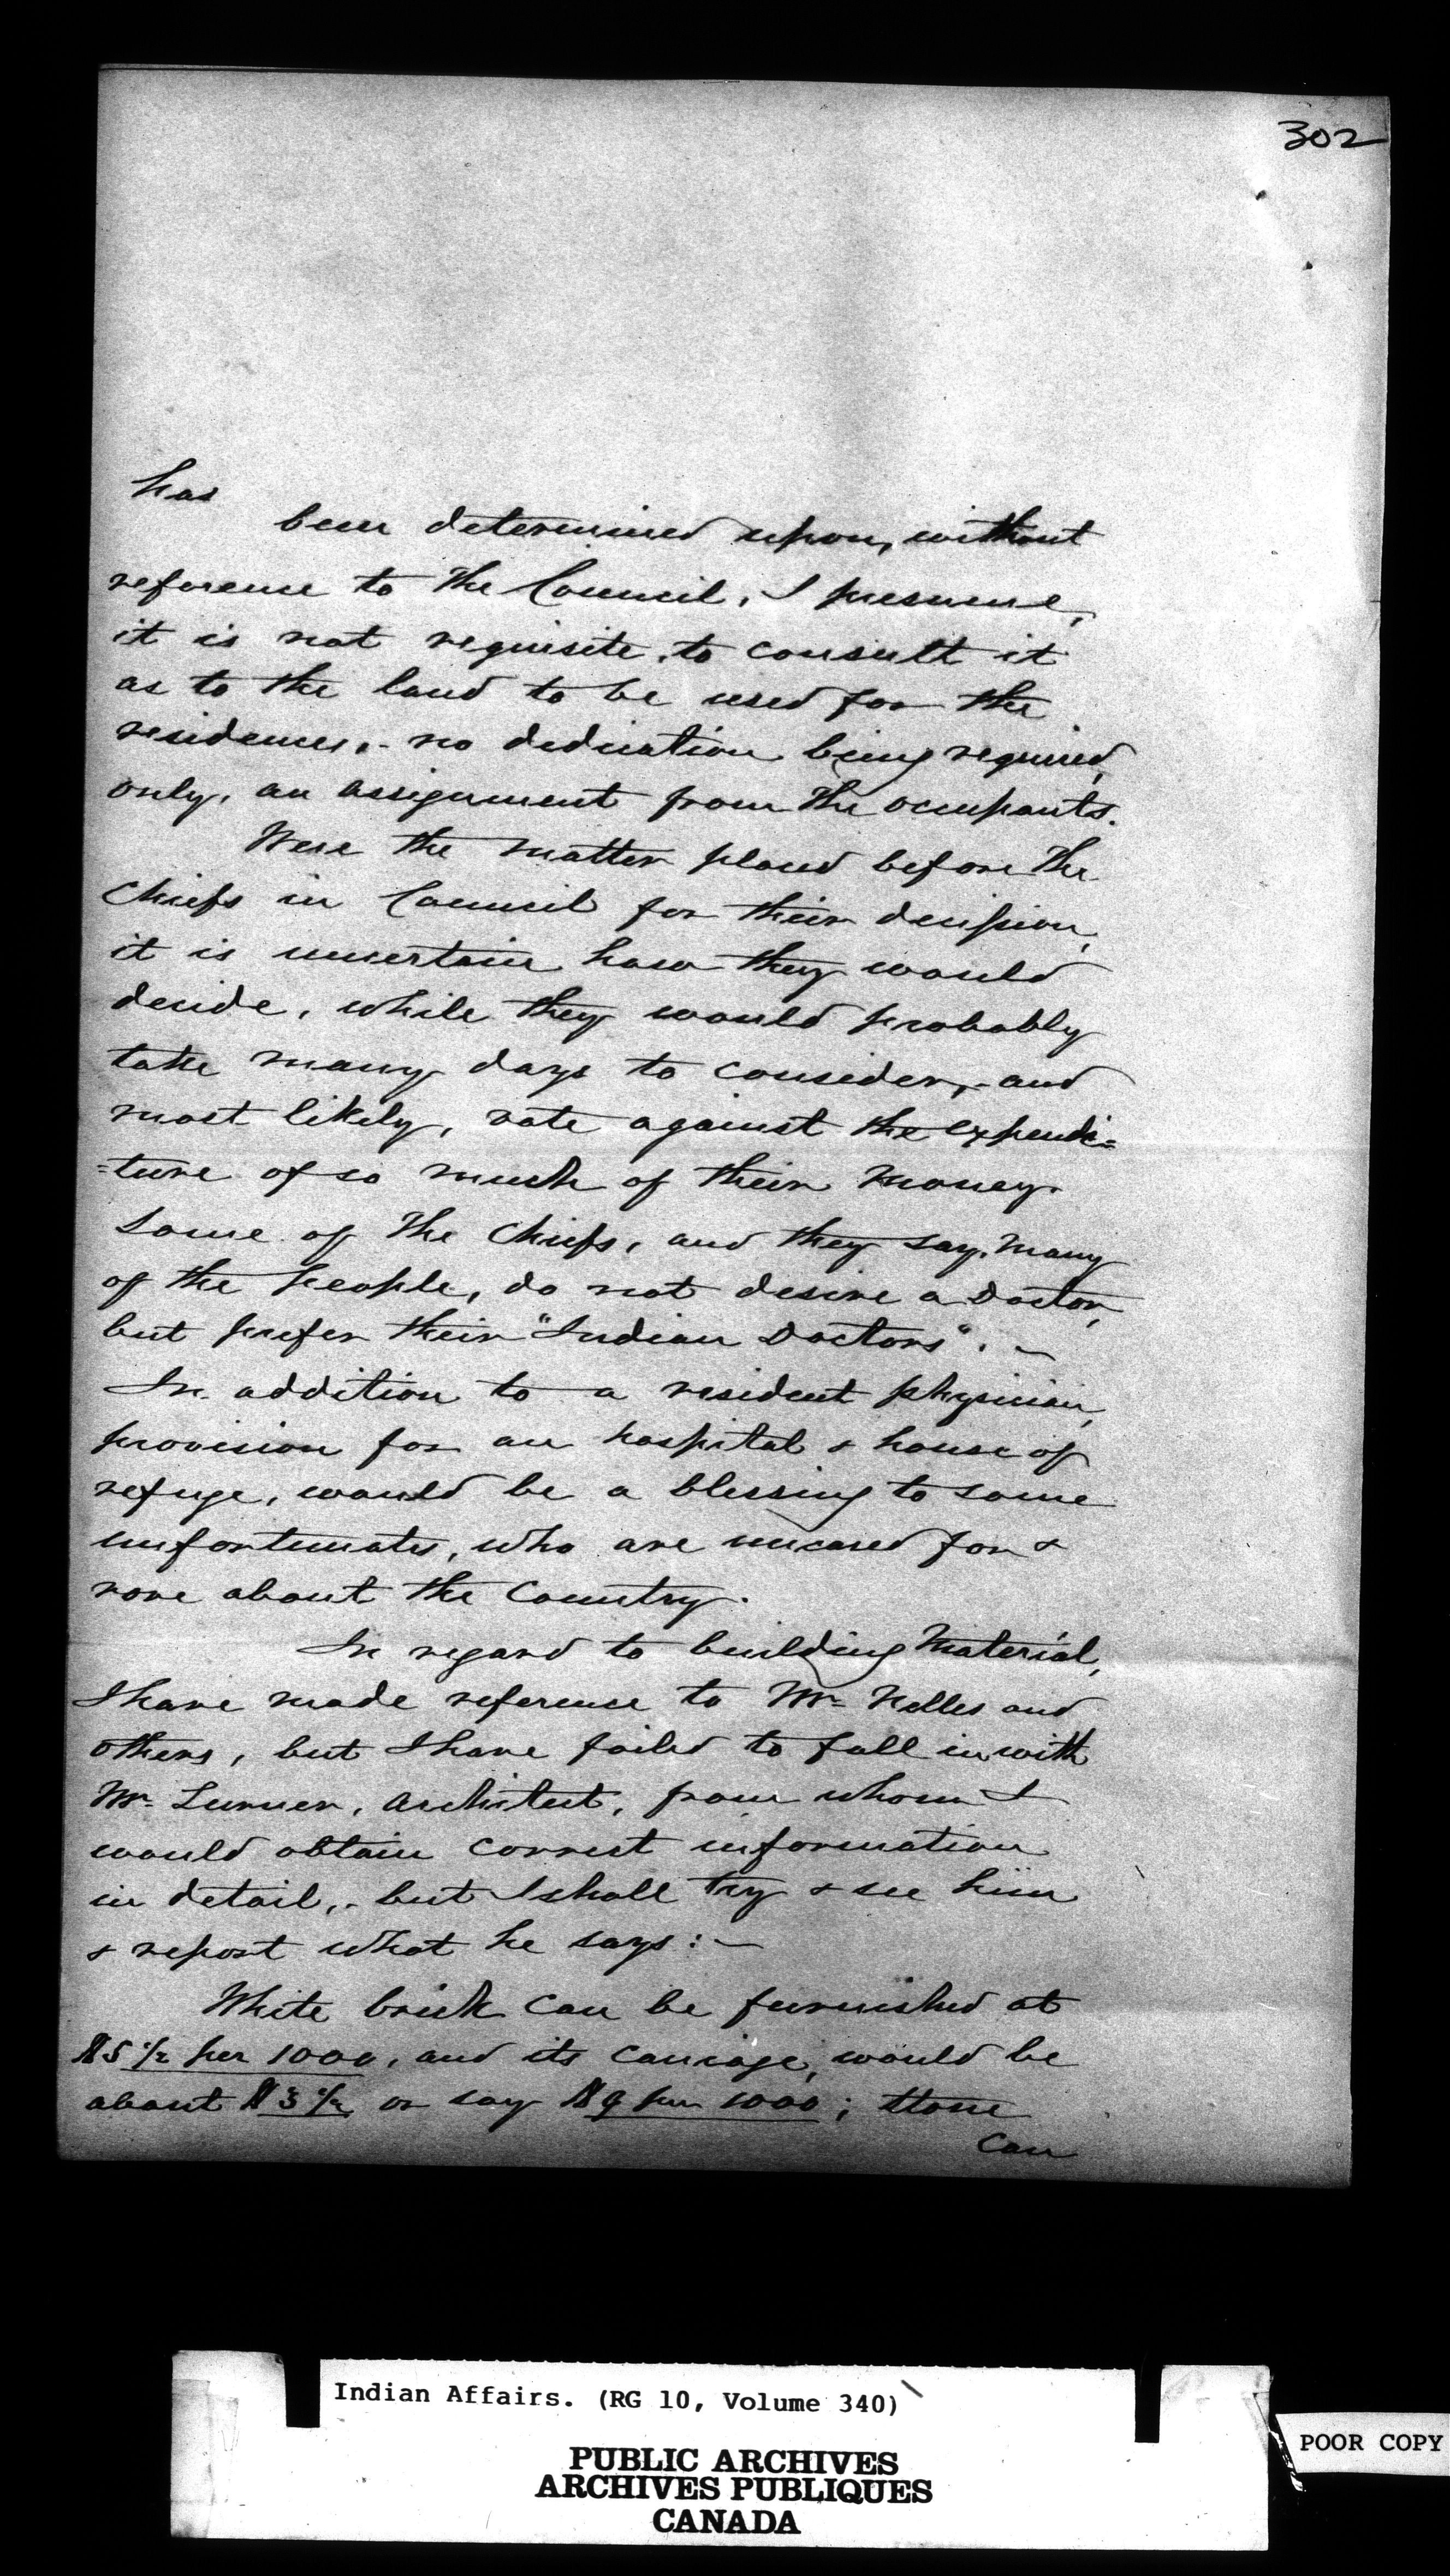 302
has
been determined upon, without
reference to the Council, I presume,
it is not requisite, to consult it
as to the land to be used for the
residences,- no dedication being required,
only, an assignment from the occupants.
Were the matter placed before the
Chiefs in Council for their decision,
it is uncertain how they would
decide, while they would probably
take many days to consider,- and
most likely, vote against the expendi=
=ture of so much of their money.
Some of the Chiefs, and they say, many
of the people, do not desire a Doctor,
but prefer their "Indian Doctors". ~
In addition to a resident physician,
provision for an hospital & house of
refuge, would be a blessing to some
unfortunates, who are uncared for &
rove about the Country.
In regard to building material,
I have made reference to Mr. Nelles and
others, but I have failed to fall in with
Mr. Turner, Architect, from whom I
would obtain correct information
in detail,- but I shall try & see him
& report what he says: —
White brick can be furnished at
$5 1/2 per 1000, and its carriage, would be
about $3 1/2 or say $9 per 1000; Stone
can
Indian Affairs. (RG 10, Volume 340)
PUBLIC ARCHIVES
ARCHIVES PUBLIQUES
CANADA
POOR COPY